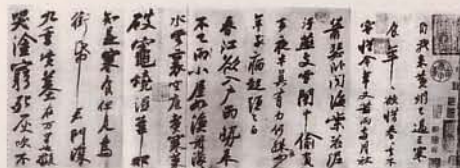 自我来黄州已過三寒
食年年欲惜春春去不
容惜今年又苦雨兩月秋
蕭瑟卧聞海棠花泥
汙燕支雪闇中偷負
去夜半真有力何殊少
年子病起頭已白
春江欲入户雨勢来
不已雨小屋如漁舟濛濛
水雲裏空庖煮寒菜
破竈燒濕葦那
知是寒食但見烏
銜帋君門深
九重墳墓在万里也擬
哭塗窮死灰吹不